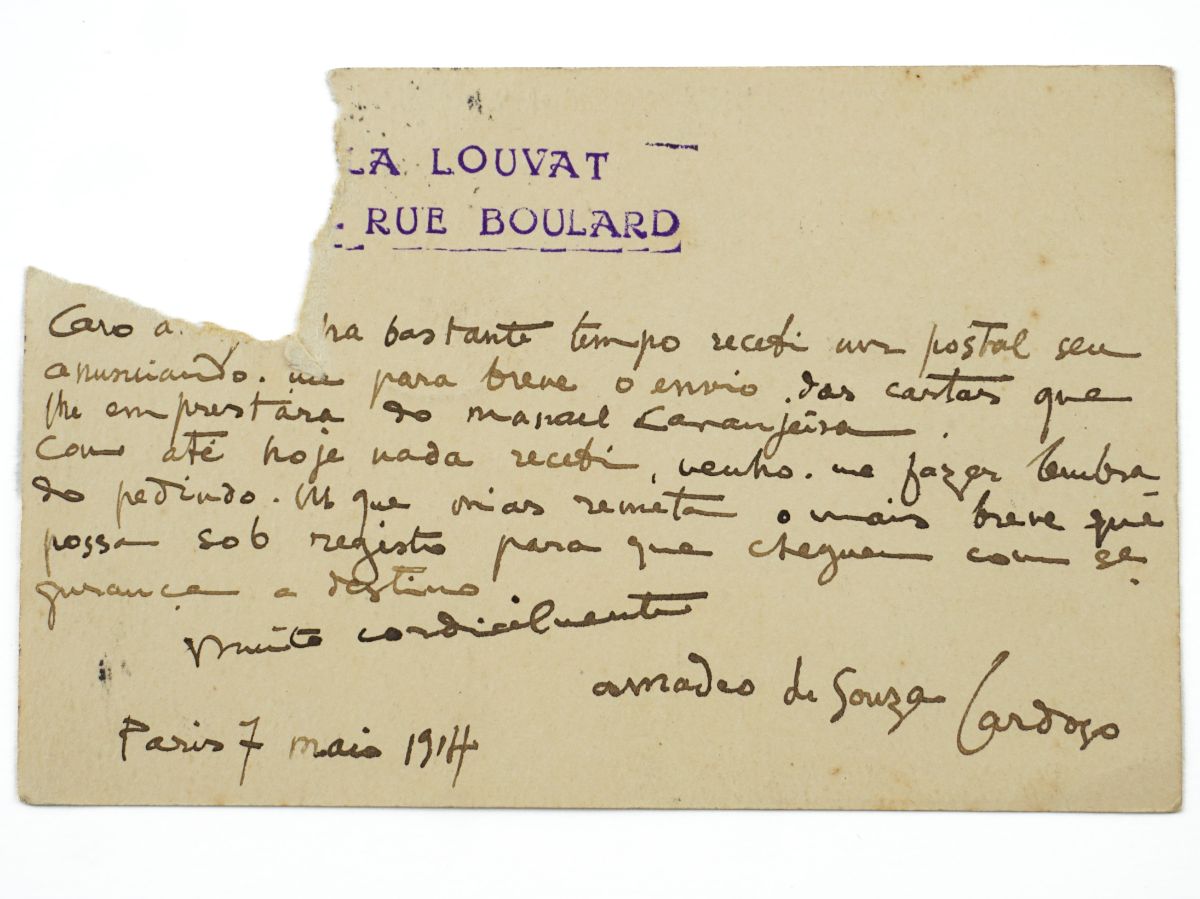 LA LOUVAT
RUE BOULARD
Caro a ha bastante tempo recebi um postal seu
anunciando-me para breve o envio das cartas que
lhe emprestara do manuel Laranjeira.
Com até hoje nada recebi, venho-me fazer lembra-
do pedindo-lhe que mias remeta o mais breve que
possa sob registo para que cheguem com se-
gurança a destino
Muito cordialmente
amadeo de Souza Cardozo
Paris 7 maio 1914